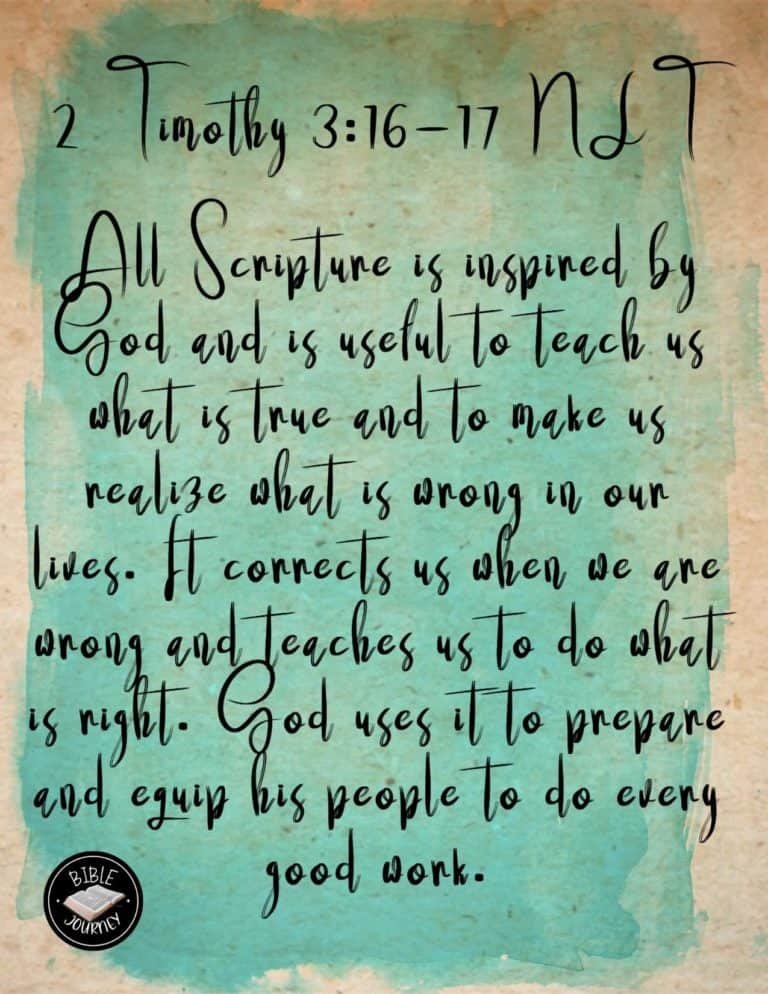 2 Timothy 3:16-17 NLT
All Scripture is inspired by
God and is useful to teach us
what is true and to make us
realize what is wrong in our
lives. It corrects us when we are
wrong and teaches us to do what
is right. God uses it to prepare
and equip his people to do every
good work.
BIBLE
JOURNEY